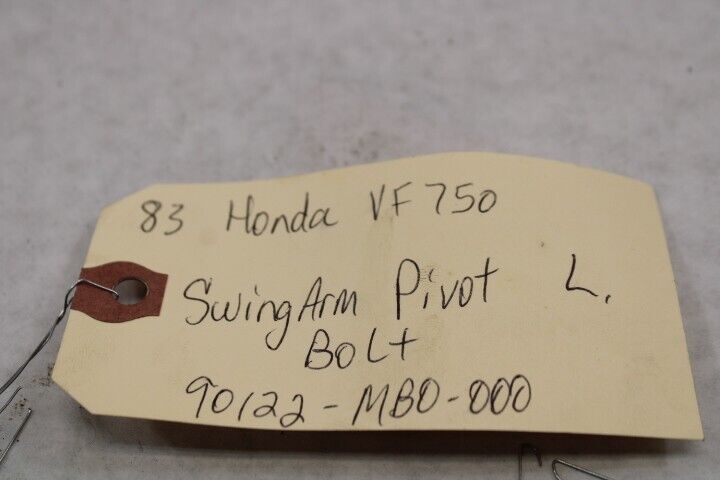 83 Honda VF750
SwingArm Pivot L.
Bolt
90122-MB0-000